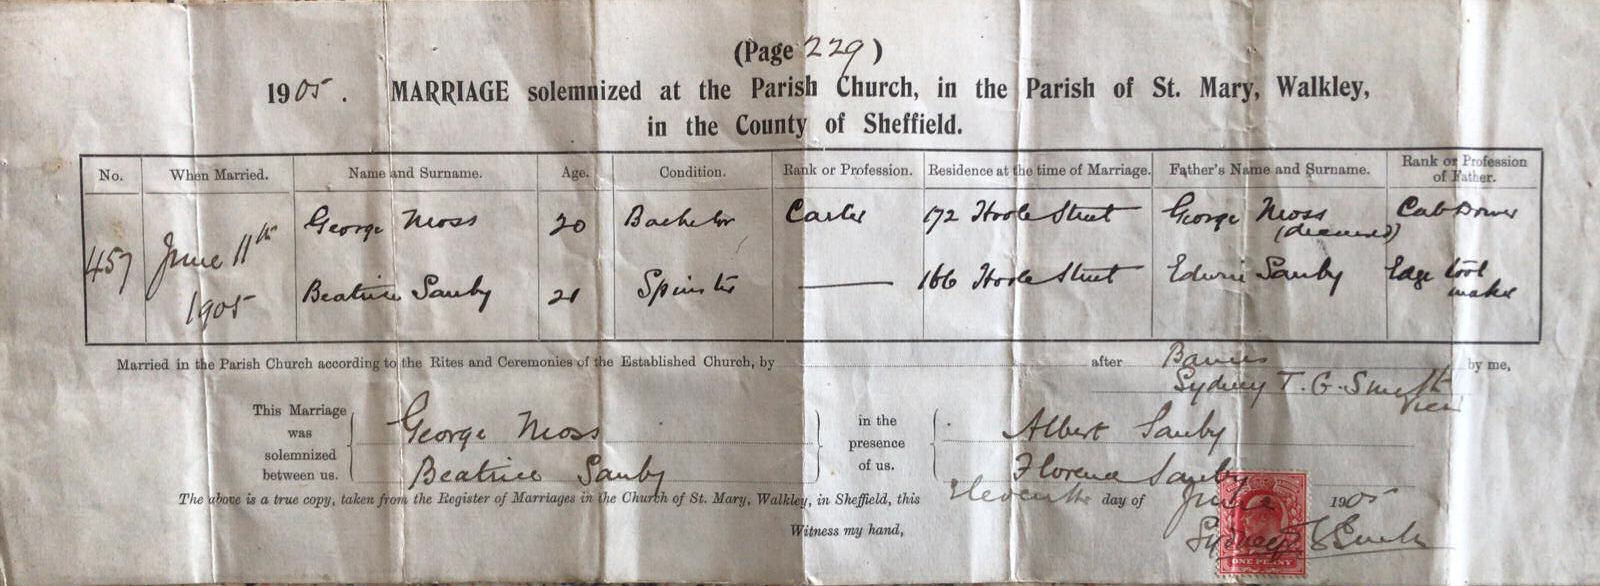 (Page 229)
1905. MARRIAGE solemnized at the Parish Church, in the Parish of St. Mary, Walkley,
in the County of Sheffield.
No. When Married. Name and Surname. Age. Condition. Rank or Profession. Residence at the time of Marriage. Father's Name and Surname. Rank or Profession of Father.
457 June 11th 1905
George Moss 20 Bachelor Carter 172 Hoole Street George Moss (deceased) Cab Driver
Beatrice Sanby 21 Spinster — 166 Hoole Street Edwin Sanby Edge tool maker
Married in the Parish Church according to the Rites and Ceremonies of the Established Church, by after Banns by me,
Sydney T. G. Smyth
This Marriage was solemnized between us.
George Moss
Beatrice Sanby
in the presence of us.
Albert Sanby
Florence Sanby
The above is a true copy, taken from the Register of Marriages in the Church of St. Mary, Walkley, in Sheffield, this Eleventh day of June 1905
Witness my hand,
Sydney
ONE PENNY